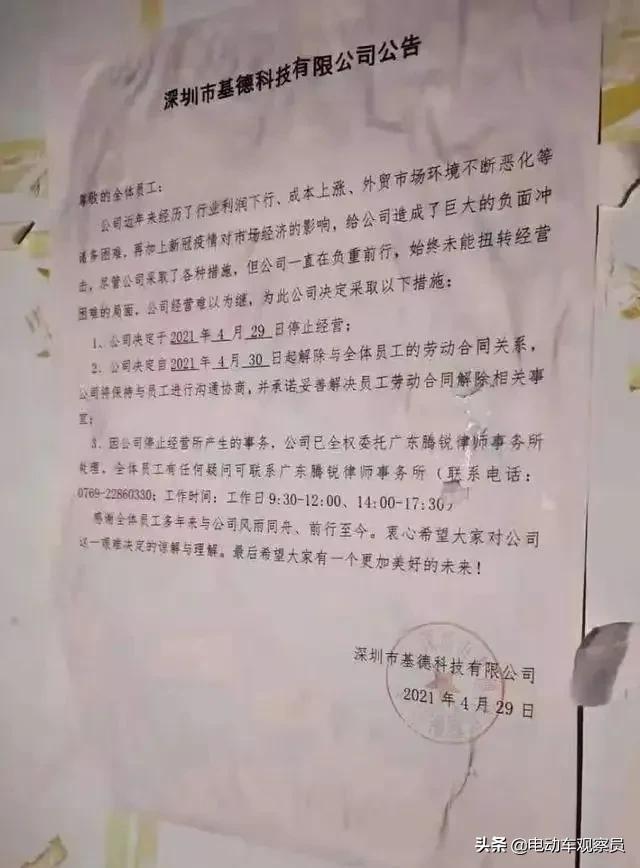 深圳市基德科技有限公司公告
尊敬的全体员工：
公司近年来经历了行业利润下行、成本上涨、外贸市场环境不断恶化等
诸多困难，再加上新冠疫情对市场经济的影响，给公司造成了巨大的负面冲
击，尽管公司采取了各种措施，但公司一直在负重前行，始终未能扭转经营
困难的局面，公司经营难以为继，为此公司决定采取以下措施：
1、公司决定于2021年4月29日停止经营；
2、公司决定自2021年4月30日起解除与全体员工的劳动合同关系，
公司将保持与员工进行沟通协商，并承诺妥善解决员工劳动合同解除相关事
宜；
3、因公司停止经营所产生的事务，公司已全权委托广东腾锐律师事务所
处理，全体员工有任何疑问可联系广东腾锐律师事务所（联系电话：
0769-22860330；工作时间：工作日9:30-12:00、14:00-17:30）
感谢全体员工多年来与公司风雨同舟、前行至今。衷心希望大家对公司
这一艰难决定的谅解与理解。最后希望大家有一个更加美好的未来！
深圳市基德科技有限公司
2021年4月29日
头条 @电动车观察员